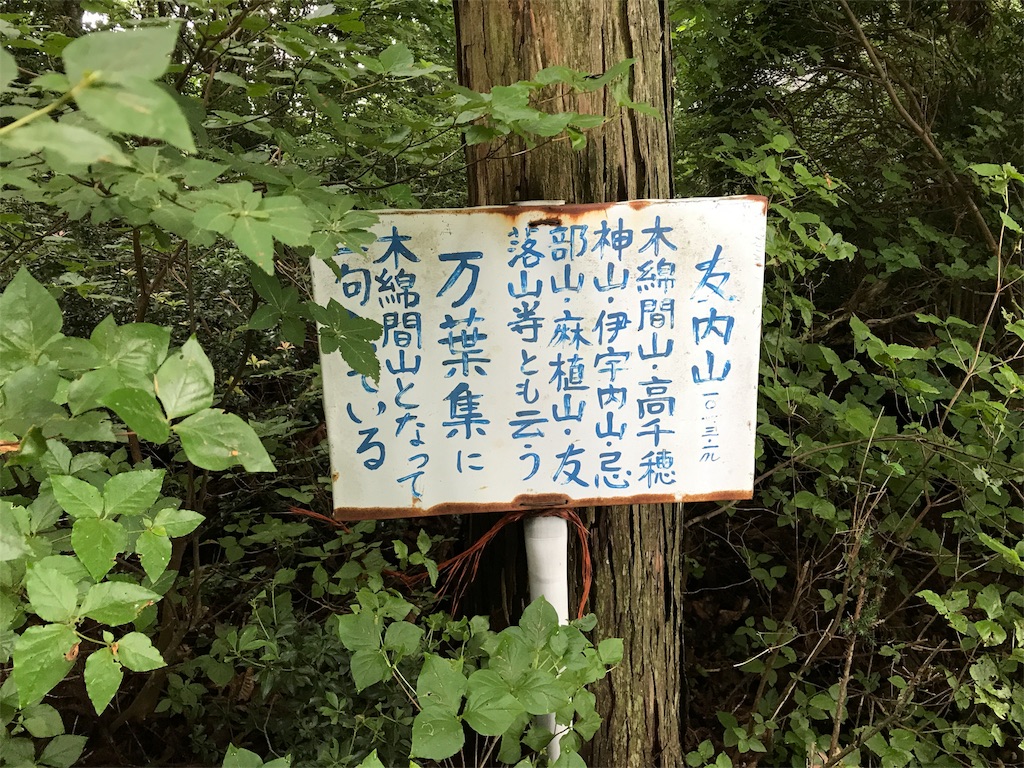 友内山 一〇.三.一ル
木綿間山・高千穂
神山・伊宇内山・忌
部山・麻植山・友
落山等とも云う
万葉集に
木綿間山となって
句 いる